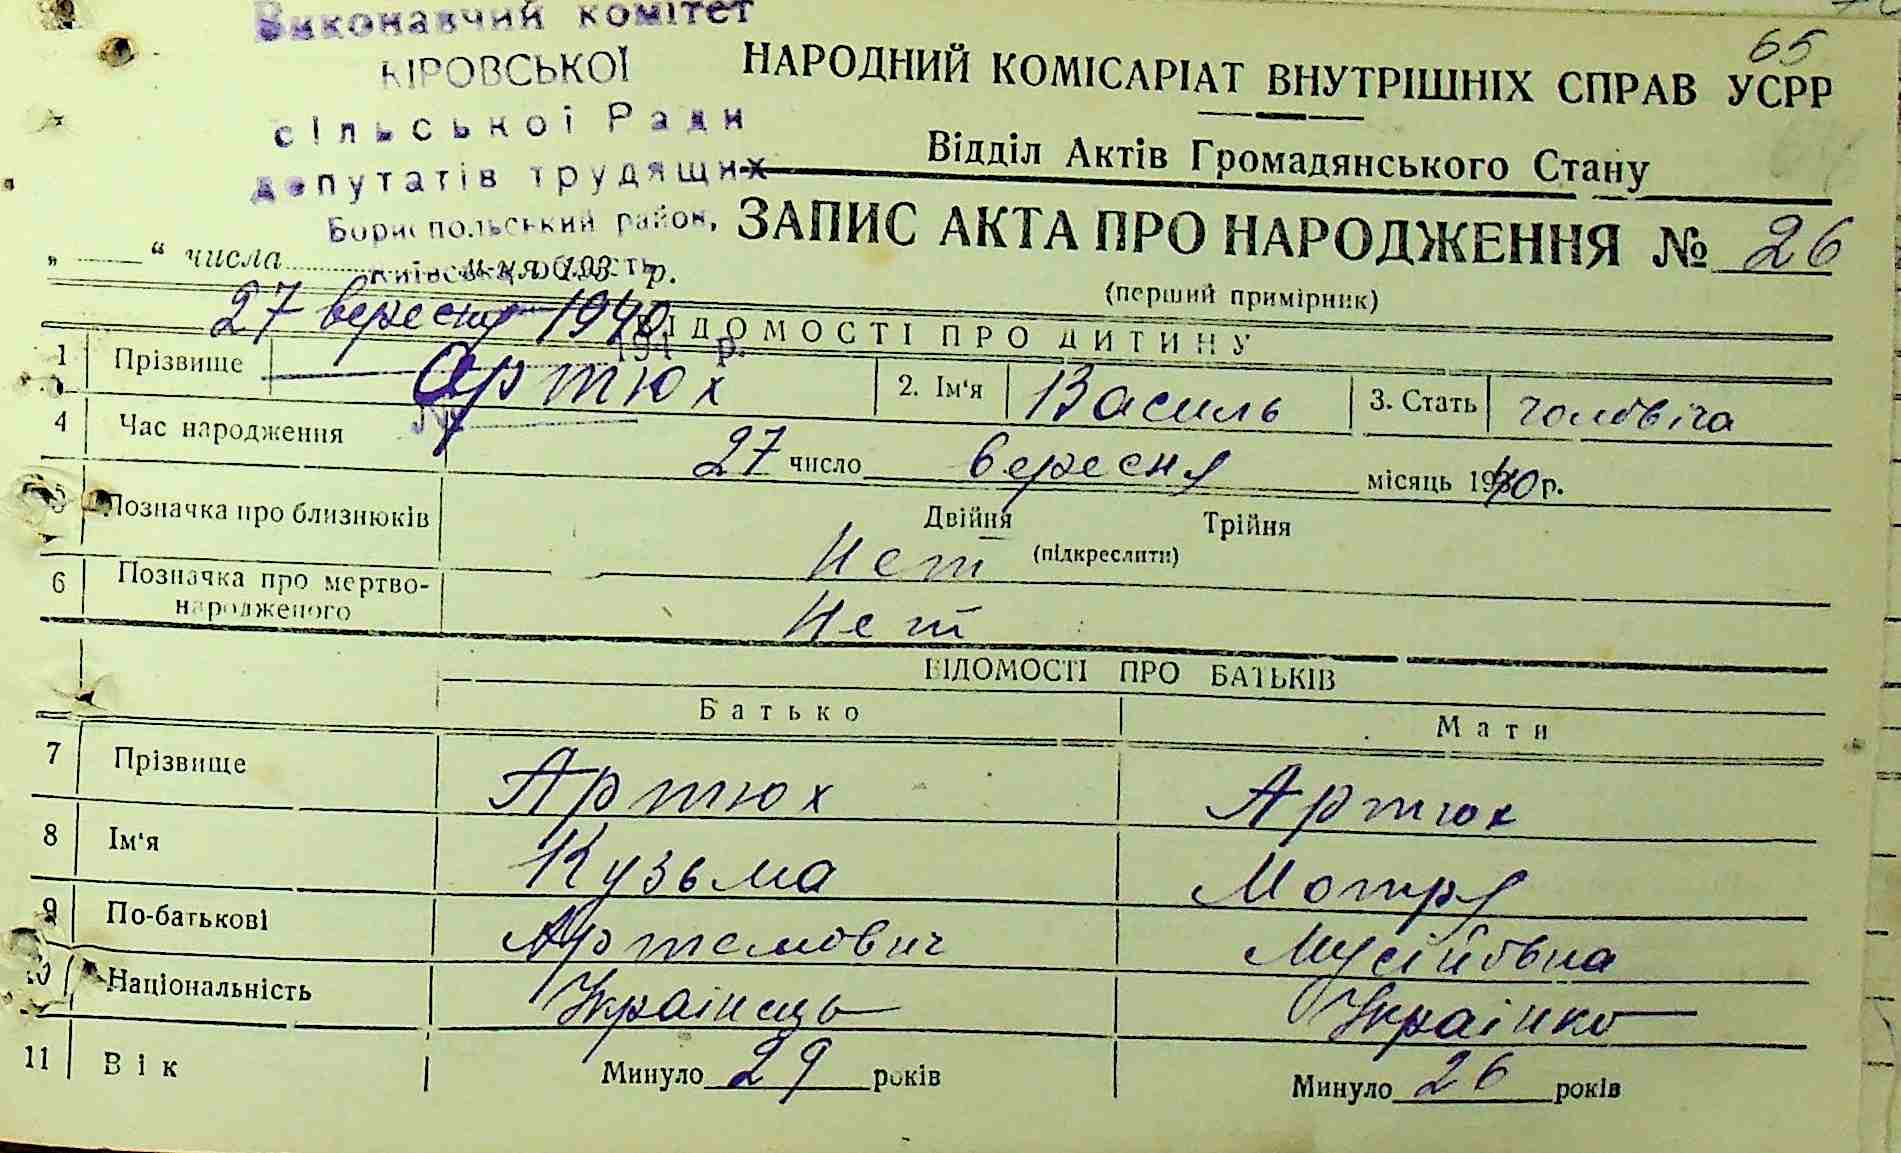 Виконавчий комітет
КІРОВСЬКОЇ
сільської Ради
депутатів трудящих
Бориспольський район,
Київська область
65
НАРОДНИЙ КОМІСАРІАТ ВНУТРІШНІХ СПРАВ УСРР
Відділ Актів Громадянського Стану
ЗАПИС АКТА ПРО НАРОДЖЕННЯ № 26
(перший примірник)
„ “ числа м-ця 193 р.
27 вересня 1940
194 р.
ВІДОМОСТІ ПРО ДИТИНУ
1 Прізвище Артюх 2. Ім'я Василь 3. Стать чоловіча
№
4 Час народження 27 число вересня місяць 1940 р.
5 Позначка про близнюків Двійня Трійня
(підкреслити)
Нет
6 Позначка про мертво-
народженого Нет
ВІДОМОСТІ ПРО БАТЬКІВ
Батько Мати
7 Прізвище Артюх Артюх
8 Ім'я Кузьма Мотря
9 По-батькові Артемович Мусійовна
10 Національність Українець Українко
11 Вік Минуло 29 років Минуло 26 років